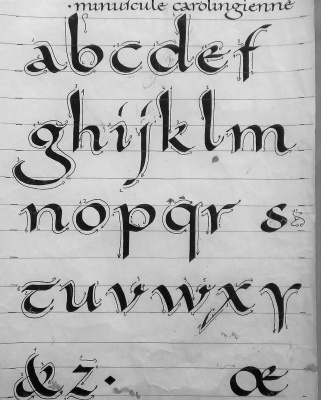 · minuscule carolingienne
abcdef
ghijklm
nopqr s
tuvwxy
&z· œ